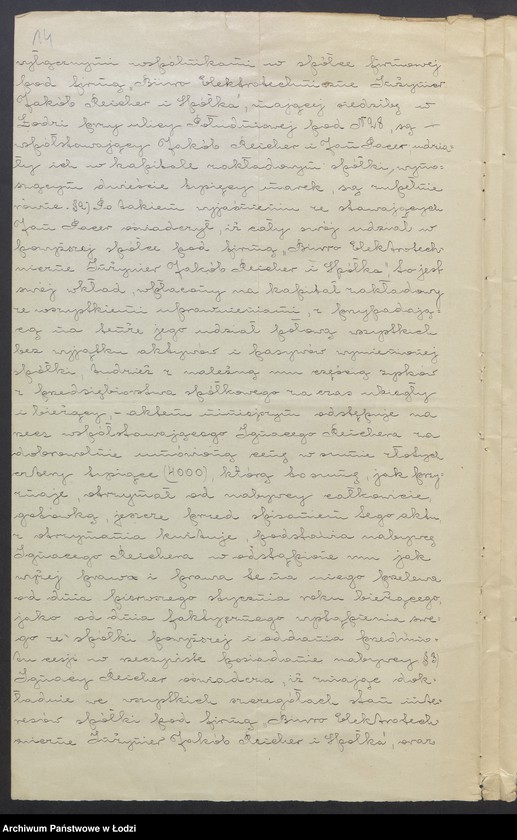 14
wyłącznymi wspólnikami w spółce firmowej
pod firmą „Biuro Elektrotechniczne Inżynier
Jakób Reicher i Spółka", mającej siedzibę w
Łodzi przy ulicy Południowej pod № 28, są —
współstawający Jakób Reicher i Jan Pacer udzia-
ły ich w kapitale zakładowym spółki, wyno-
szącym dwieście tysięcy marek, są zupełnie
równe. §2) Po takiem wyjaśnieniu ze stawających
Jan Pacer oświadczył, iż cały swój udział w
powyższej spółce pod firmą „Biuro Elektrotech-
niczne Inżynier Jakób Reicher i Spółka", to jest
swój wkład, wpłacony na kapitał zakładowy
ze wszystkiemi uprawnieniami, z przypadają-
cą na tenże jego udział połową wszystkich
bez wyjątku aktywów i pasywów wymienionej
spółki, tudzież z należną mu częścią zysków
z przedsiębiorstwa spółkowego za czas ubiegły
i bieżący, – aktem niniejszym odstępuje na
rzecz współstawającego Ignacego Reichera za
dobrowolnie umówioną cenę w sumie złotych
cztery tysiące (4000), którą to sumę, jak przy-
znaje, otrzymał od nabywcy całkowicie,
gotówką, jeszcze przed spisaniem tego aktu,
z otrzymania kwituje, podstawia nabywcę
Ignacego Reichera w odstąpione mu jak
wyżej prawa i prawa te na niego przelewa
od dnia pierwszego stycznia roku bieżącego,
jako od dnia faktycznego wystąpienia swe-
go ze spółki powyższej i oddania przedmio-
tu cesji w rzeczywiste posiadanie nabywcy §3)
Ignacy Reicher oświadcza, iż znając dok-
ładnie we wszystkich szczegółach stan inte-
resów spółki pod firmą „Biuro Elektrotech-
niczne Inżynier Jakób Reicher i Spółka", oraz
Archiwum Państwowe w Łodzi